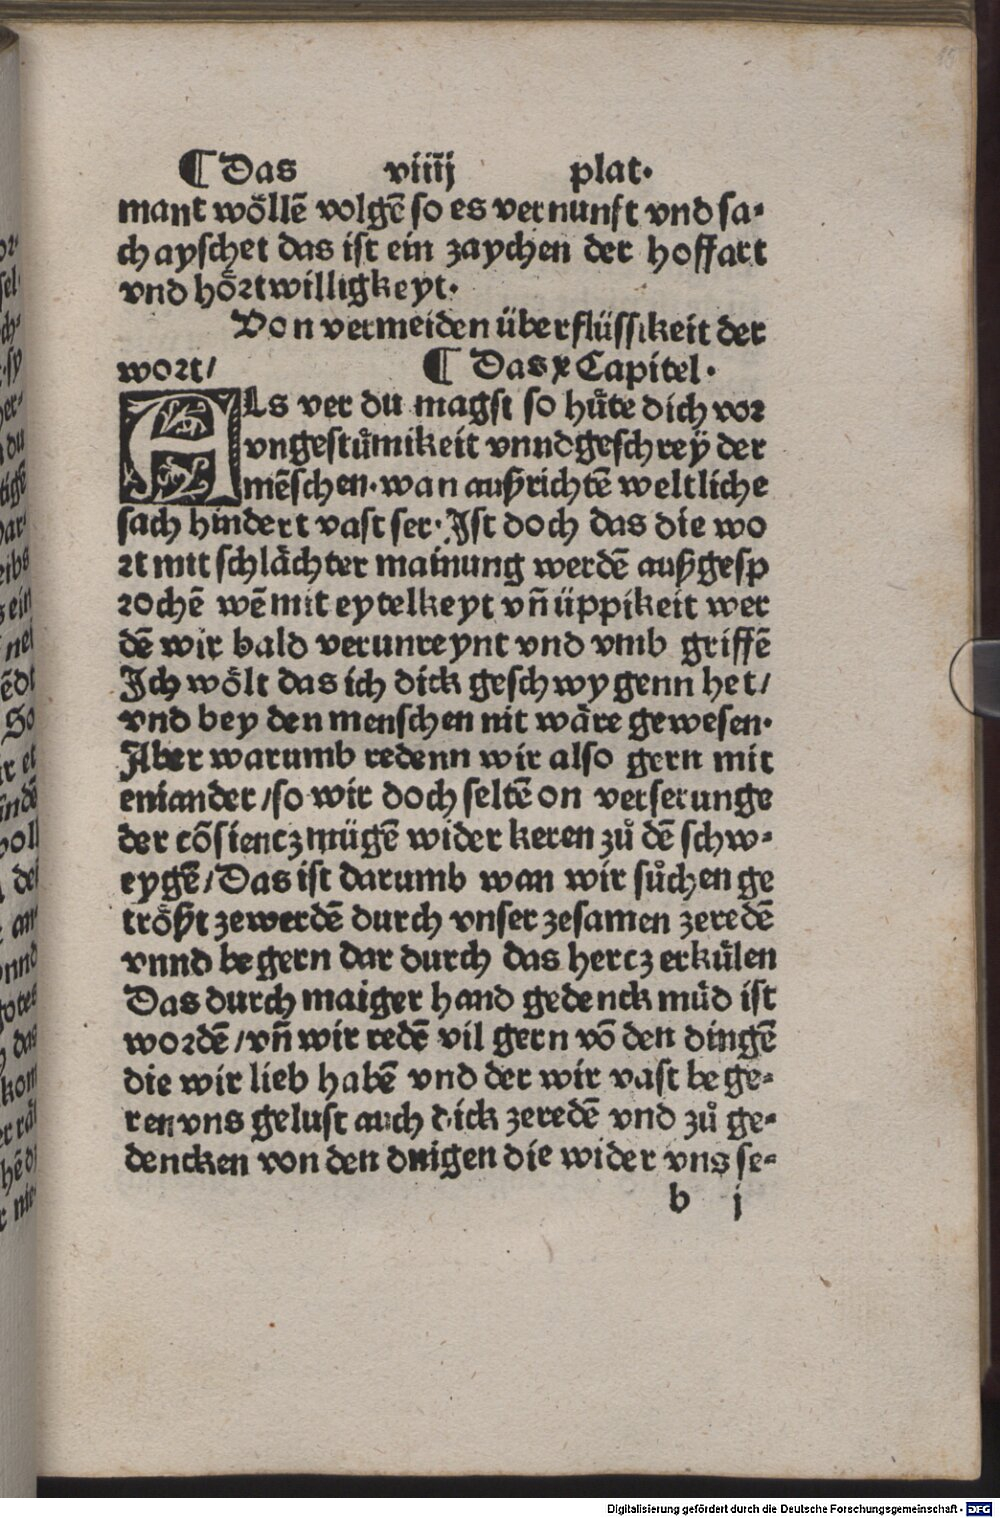 ¶ Das viiij plat.
mant wöllē volgē so es vernunft vnd sa-
ch ayschet das ist ein zaychen der hoffart
vnd hörtwilligkeyt.
Von vermeiden überflüssikeit der
wort/ ¶ Das x Capitel.
ALs ver du magst so hůte dich vor
vngestůmikeit vnnd geschreÿ der
mēschen. wan außrichtē weltliche
sach hindert vast ser. Ist doch das die wo
rt mit schlächter mainung werdē außgesp
rochē wē mit eytelkeyt vn̄ üppikeit wer
dē wir bald verunreynt vnd vmb griffē
Ich wölt das ich dick geschwygenn het/
vnd bey den menschen nit wäre gewesen.
Aber warumb redenn wir also gern mit
eniander/so wir doch seltē on verserunge
der cōsientz mügē wider keren zů dē schw-
eygē/Das ist darumb wan wir sůchen ge
trößt zewerdē durch vnser zesamen zeredē
vnnd begern dar durch das hercz erkůlen
Das durch maiger hand gedenck můd ist
wordē/vn̄ wir redē vil gern vō den dingē
die wir lieb habē vnd der wir vast bege-
ren vns gelust auch dick zeredē vnd zů ge-
dencken von den dnigen die wider vns se-
b j
Digitalisierung gefördert durch die Deutsche Forschungsgemeinschaft - DFG